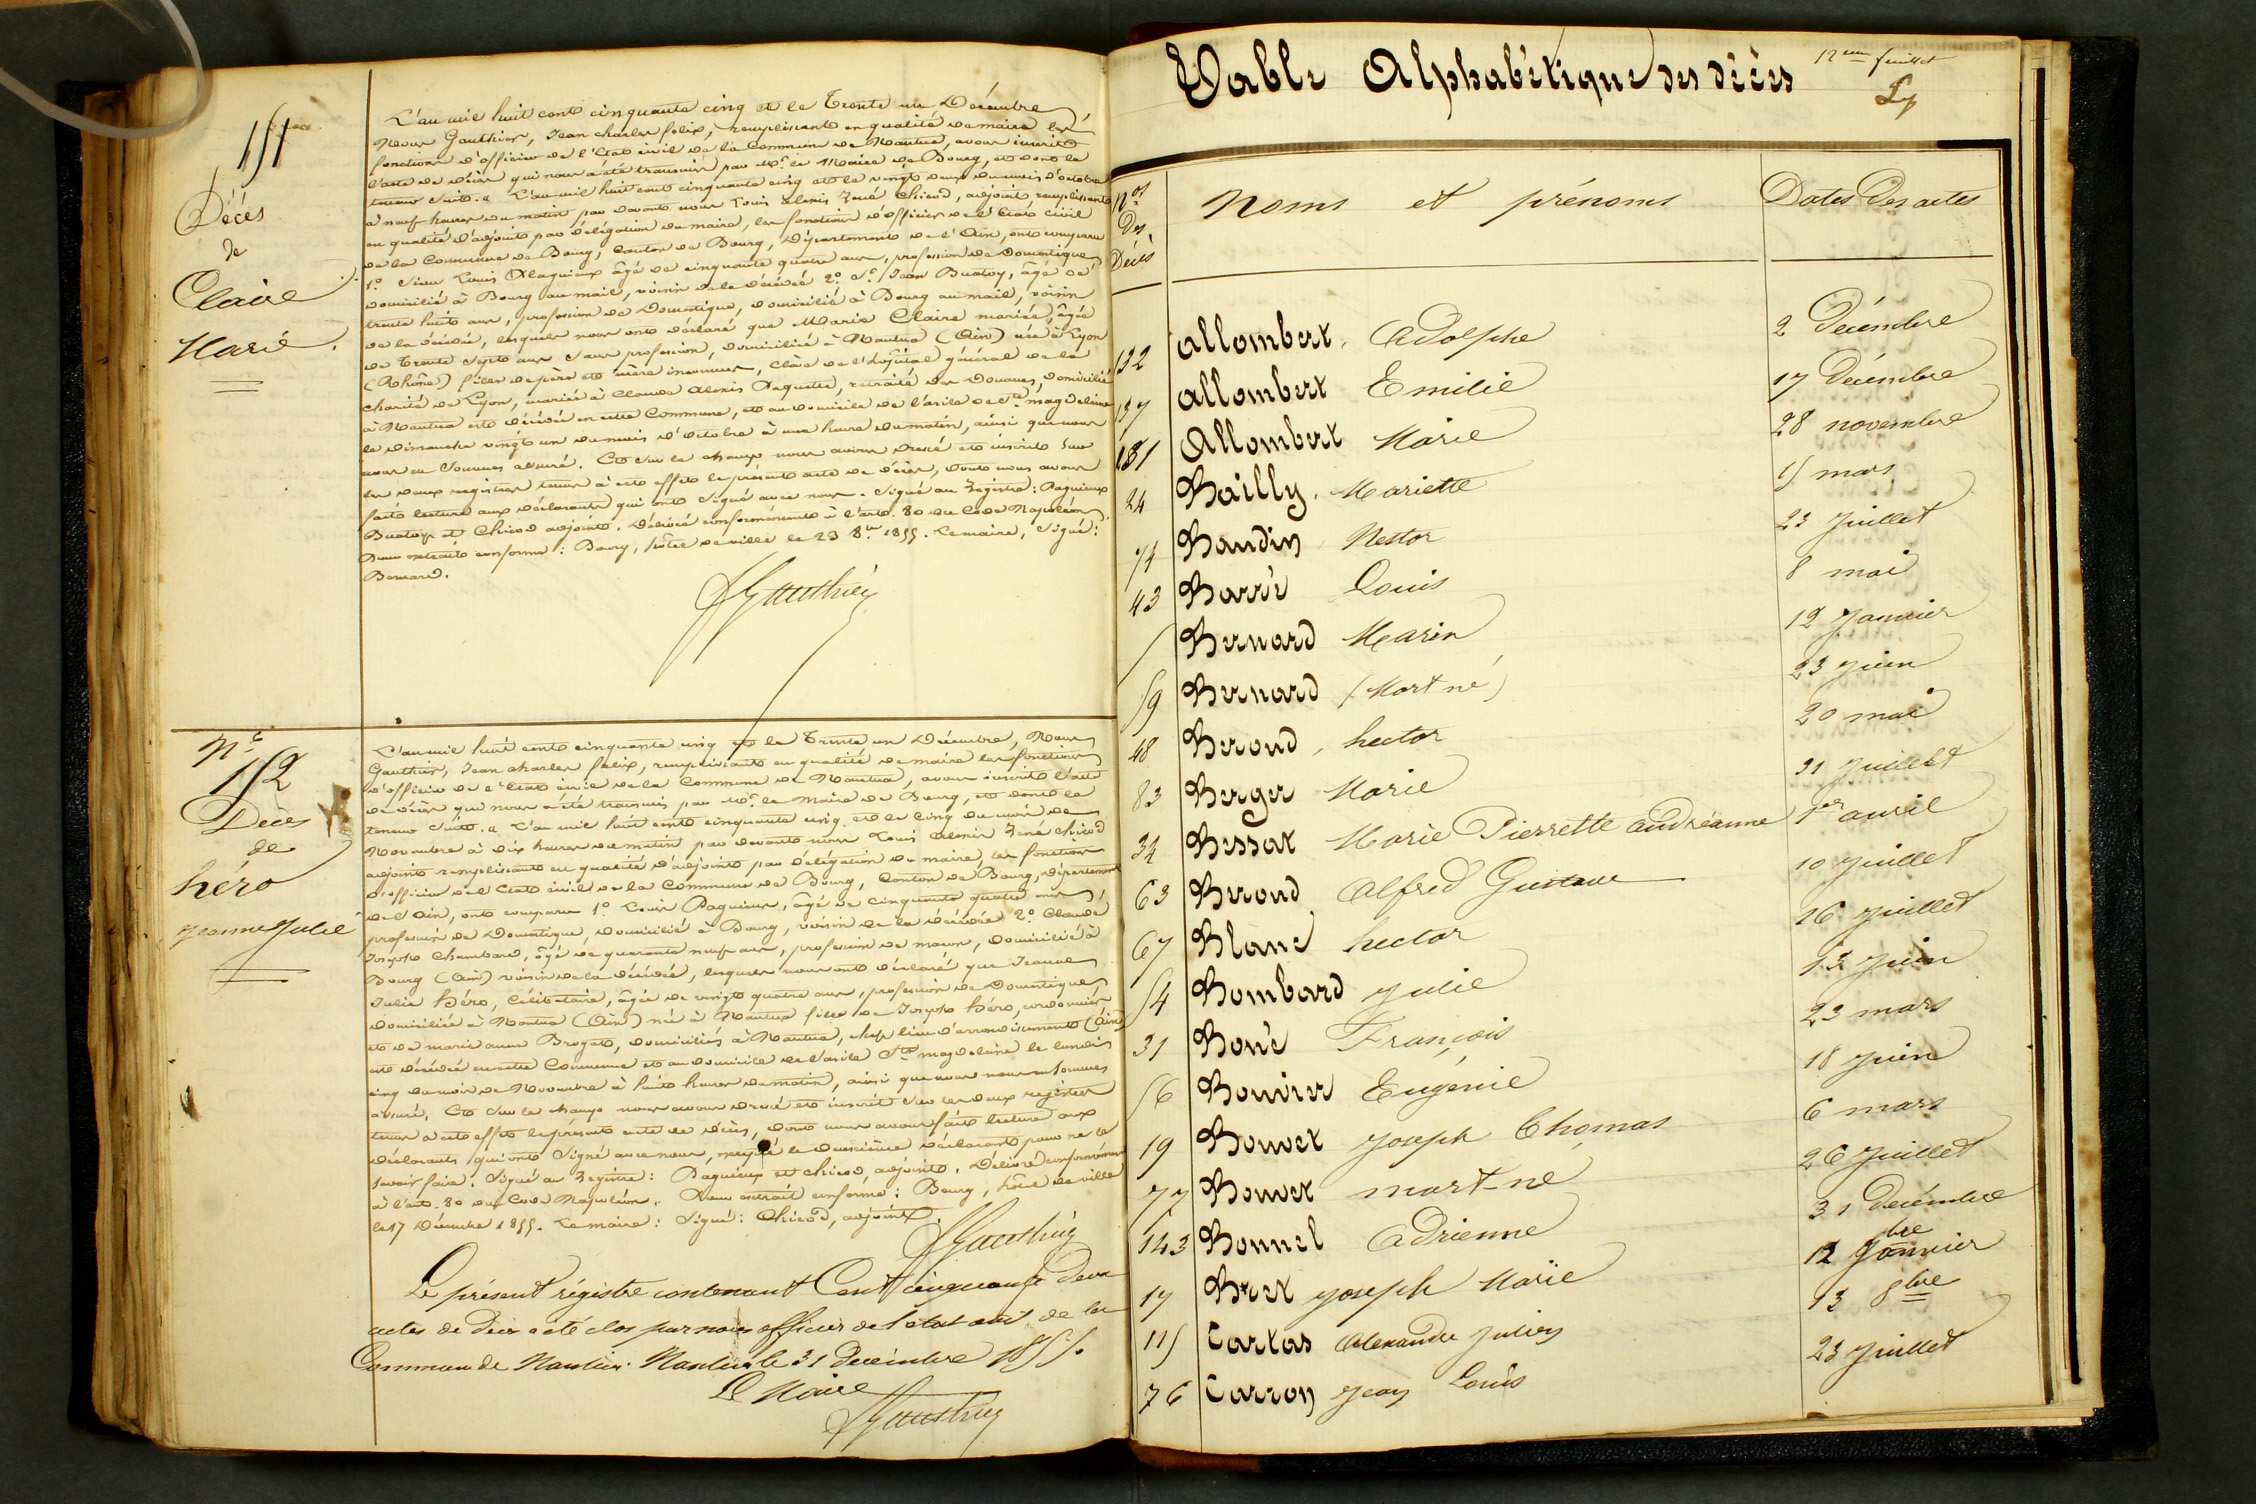 151
Décès
de
Claire
Marie.
L'an mil huit cent cinquante cinq et le Trente un Décembre,
Nous Gauthier, Jean charles felix, remplissant en qualité de maire les
fonctions d'officier de l'Etat civil de la Commune de Nantua, avons inscrit
l'acte de décès qui nous a été transmis par Mr. le Maire de Bourg, et dont la
teneur suit. « L'an mil huit cent cinquante cinq et le vingt deux du mois d'octobre
à neuf heures du matin par devant nous Louis Alexis René Chicod, adjoint, remplissant
en qualité d'adjoint par délégation du maire, les fonctions d'officier de l'Etat civil
de la Commune de Bourg, Canton de Bourg, Département de l'Ain, ont comparu
1o. Sieur Louis Paquieux âgé de cinquante quatre ans, profession de Domestique,
domicilié à Bourg au mail, voisin de la décédée 2o. Sr. Jean Buatoy, âgé de
trente huit ans, profession de Domestique, domicilié à Bourg au mail, voisin
de la décédée, lesquels nous ont déclaré que Marie Claire mariée, âgée
de Trente sept ans sans profession, domiciliée à Nantua (Ain) née à Lyon
(Rhône) filles de père et mère inconnus, élève de l'hôpital général de la
charité de Lyon, mariée à Claude Alexis Paquette, retraité des Douanes, domicilié
à Nantua est décédée en cette Commune, et au domicile de l'asile de Ste. magdeleine
le dimanche vingt un du mois d'Octobre à une heure du matin, ainsi que nous
nous en sommes assuré. Et sur le champ nous avons dressé et inscrit sur
les deux registres tenus à cet effet le présent acte de décès, dont nous avons
fait lecture aux déclarants qui ont signé avec nous. Signé au Registre: Paquieux
Buatoy et Chicod adjoint. Délivré conformément à l'art. 80 du Code Napoléon.
Pour extrait conforme: Bourg, hôtel de ville le 23 8bre 1855. Le maire, Signé:
Bernard.
Gauthier
No.
152
Décès
de
héro
Jeanne Julie
L'an mil huit cent cinquante cinq et le Trente un Décembre, Nous
Gauthier, Jean charles felix, remplissant en qualité de maire les fonctions
d'officier de l'Etat civil de la Commune de Nantua, avons inscrit l'acte
de décès qui nous a été transmis par Mr. le Maire de Bourg, et dont la
teneur suit. « L'an mil huit cent cinquante cinq et le cinq du mois de
Novembre à dix heures du matin par devant nous Louis Alexis René Chicod
adjoint remplissant en qualité d'adjoint par délégation du maire, les fonctions
d'officier de l'Etat civil de la Commune de Bourg, Canton de Bourg, département
de l'Ain, ont comparu 1o. Louis Paquieux, âgé de cinquante quatre ans,
profession de Domestique, domicilié à Bourg, voisin de la décédée 2o. Claude
Joseph Chambard, âgé de quarante neuf ans, profession de maçon, domicilié à
Bourg (Ain) voisin de la décédée, lesquels nous ont déclaré que Jeanne
Julie Héro, Célibataire, âgée de vingt quatre ans, profession de Domestique
domiciliée à Nantua (Ain) née à Nantua fille de Joseph héro, cordonnier
et de marie anne Broget, domiciliés à Nantua, chef lieu d'arrondissement (Ain)
est décédée en cette Commune et au domicile de l'asile Ste. magdelaine le lundi
cinq du mois de Novembre à huit heures du matin, ainsi que nous nous en sommes
assuré. Et sur le champ nous avons dressé et inscrit sur les deux registres
tenus à cet effet le présent acte de décès, dont nous avons fait lecture aux
déclarants qui ont signé avec nous, excepté le deuxième déclarant pour ne le
savoir faire. Signé au Registre: Paquieux et Chicod, adjoint. Délivré conformément
à l'art. 80 du Code Napoléon. Pour extrait conforme: Bourg, hôtel de ville
le 17 Décembre 1855. Le maire: Signé: Chicod, adjoint.
Gauthier
Le présent régistre contenant Cent cinquante deux
actes de décès a été clos par nous officier de l'état civil de la
Commune de Nantua. Nantua le 31 décembre 1855.
Le Maire
Gauthier
Table Alphabétique des décès
12eme feuillet
Nos Des Décès
Noms et prénoms
Dates Des actes
132 Allombert, Adolphe 2 Décembre
137 Allombert Emilie 17 Décembre
131 Allombert Marie 28 novembre
24 Bailly, Mariette 15 mars
74 Baudin Nestor 23 Juillet
43 Barré Louis 8 mai
5 Bernard Marin 12 Janvier
59 Bernard (Mort né) 23 Juin
48 Beroud, hector 20 mai
83 Berger Marie 31 Juillet
34 Bessat Marie Pierrette andréanne 1er avril
63 Beroud Alfred Gustave 10 Juillet
67 Blanc hector 16 Juillet
54 Bombard Julie 12 Juin
31 Boné François 23 mars
56 Bouvier Eugénie 18 Juin
19 Bouvet Joseph Thomas 6 mars
77 Bouvet mort-né 26 Juillet
143 Bonnel Adrienne 31 Decémbre
17 Bret Joseph Marie 12 Janvier
115 Cartas Alexandre Julien 13 8bre
76 Carron Jean Louis 23 Juillet